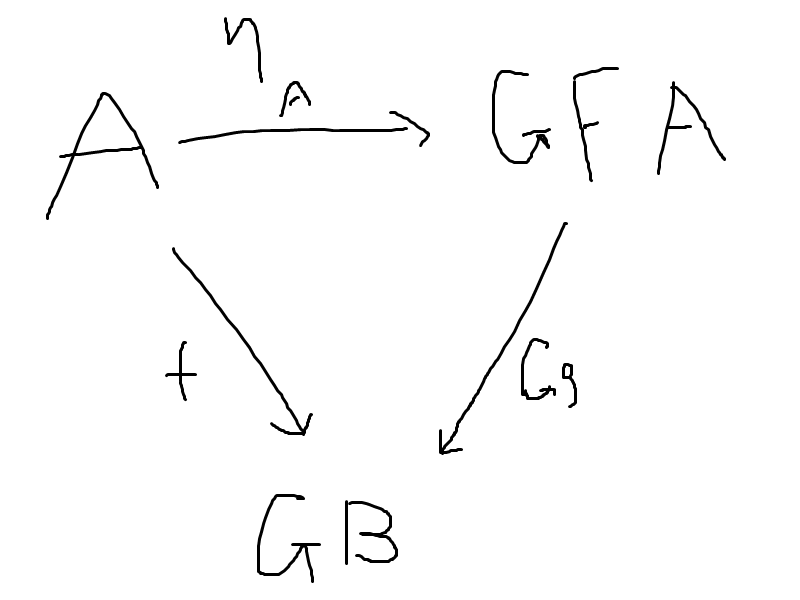 η
A
A
GFA
f
Gg
GB